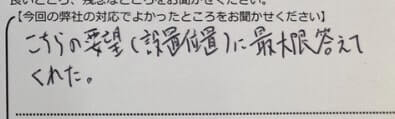 良いところ、残念なところをお聞かせください。
【今回の弊社の対応でよかったところをお聞かせください】
こちらの要望(設置位置)に最大限答えて
くれた。